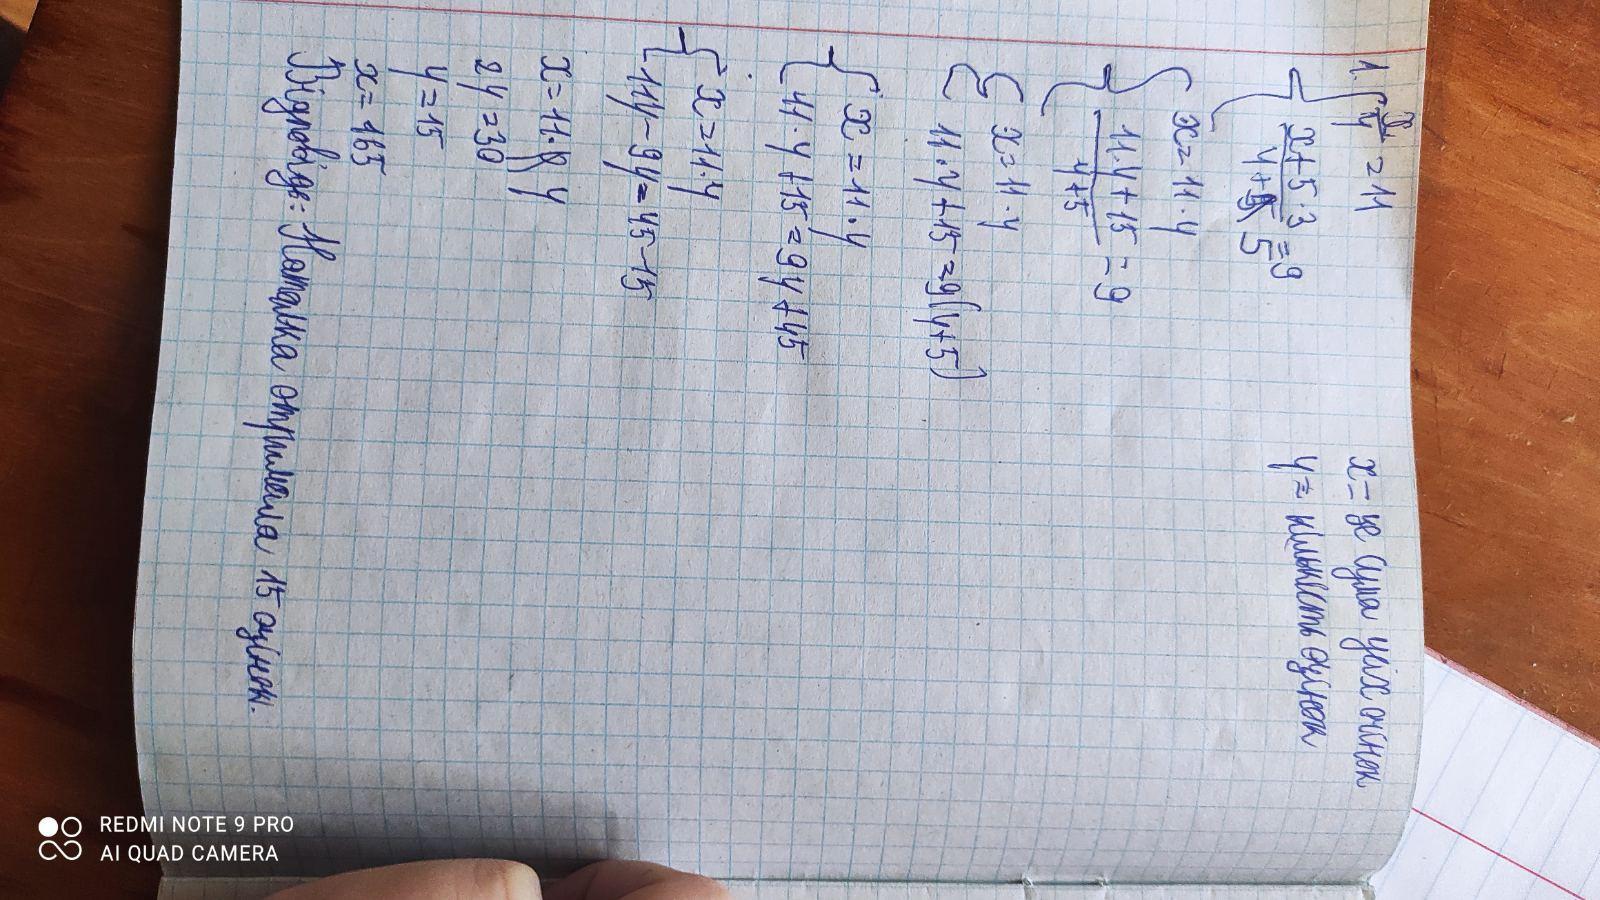 1 x/y = 11
x = це сума усіх оцінок
(x+5·3)/(y+5) = 9
y = кількість оцінок
x = 11·y
(11·y+15)/(y+5) = 9
x = 11·y
11·y+15 = 9(y+5)
x = 11·y
11·y+15 = 9y+45
x = 11·y
11y-9y = 45-15
x = 11·y
2y = 30
y = 15
x = 165
Відповідь: Наталка отримала 15 оцінок.
REDMI NOTE 9 PRO
AI QUAD CAMERA